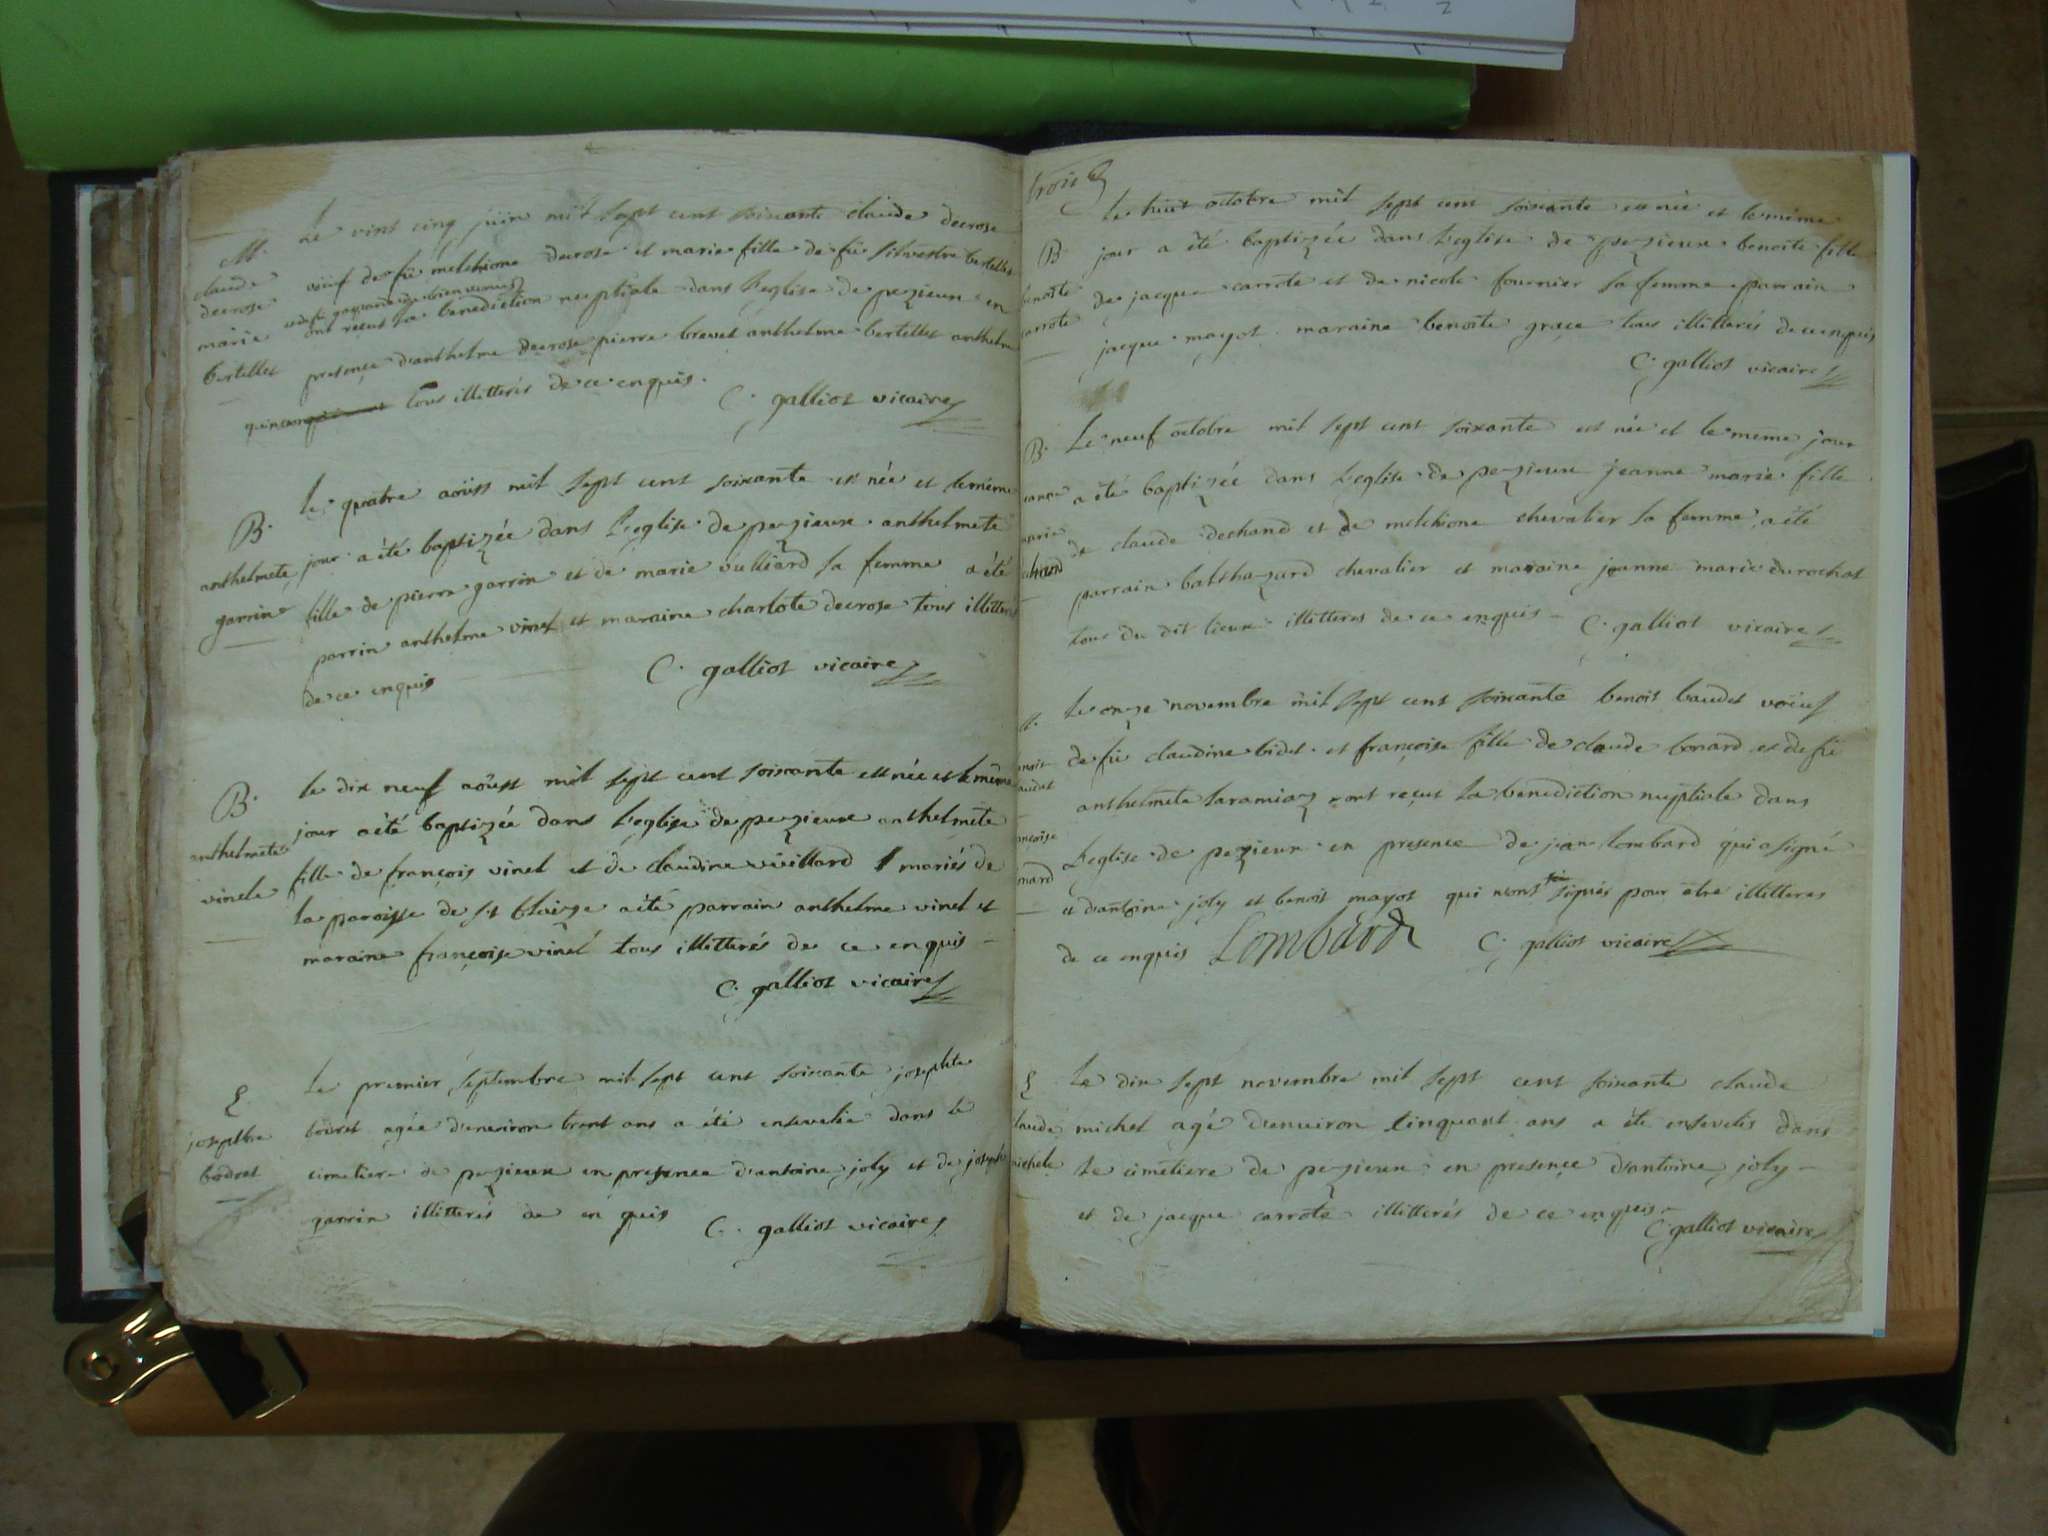 M.
claude
decrose
marie
bertillet
Le vint cinq juin mil sept cent soixante claude decrose
vëuf de füe melchione decrose et marie fille de fü silvestre bertillet
ont reçus la benediction nuptiale dans l'eglise de pezieux en
presence d'anthelme decrose pierre brevet anthelme bertillet anthelme
tous illitterés de ce enquis.
C. galliot vicaire
B.
anthelmete
garrin
le quatre aoüst mil sept cent soixante est née et le même
jour a été baptizée dans l'eglise de pezieux anthelmete
fille de pierre garrin et de marie vulliard sa femme a été
parrin anthelme vinet et maraine charlote decrose tous illitterés
de ce enquis
C. galliot vicaire
B.
anthelmete
vinete
le dix neuf aoüst mil sept cent soixante est née et le même
jour a été baptizée dans l'eglise de pezieux anthelmete
fille de françois vinet et de claudine vuillard mariés de
la paroisse de st blaize a été parrain anthelme vinet et
maraine françoise vinet tous illitterés de ce enquis
C. galliot vicaire
E.
josephte
bodret
Le premier septembre mil sept cent soixante josephte
bodret agée d'environ trent ans a été ensevelie dans le
cimetiere de pezieux en presence d'antoine joly et de joseph
garrin illitterés de en quis
C. galliot vicaire
trois
B
benoite
carrote
Le huit octobre mil sept cent soixante est née et le même
jour a été baptizée dans l'eglise de pezieux benoite fille
de jacque carrote et de nicole fournier sa femme parrain
jacque mayot maraine benoite grace tous illitterés de ce enquis
C. galliot vicaire
B.
jeanne
marie
dechand
Le neuf octobre mil sept cent soixante est née et le même jour
a été baptizée dans l'eglise de pezieux jeanne marie fille
de claude dechand et de melchione chevalier sa femme a été
parrain balthazard chevalier et maraine jeanne marie durochat
tous du dit lieux illitteres de ce enquis C. galliot vicaire
M.
benoit
baudet
françoise
bonard
Le onze novembre mil sept cent soixante benoit baudet voëuf
de fü claudine bidet et françoise fille de claude bonard et de fü
anthelmete laramiaz ont reçut la benediction nuptiale dans
l'eglise de pezieux en presence de jean lombard qui a signé
et d'antoine joly et benoit mayot qui n'ont signés pour etre illitteres
de ce enquis Lombard C. galliot vicaire
E
claude
michele
Le dix sept novembre mil sept cent soixante claude
michel agé d'environ cinquant ans a été ensevelis dans
le cimetiere de pezieux en presence d'antoine joly
et de jacque carrote illitterés de ce enquis
C galliot vicaire